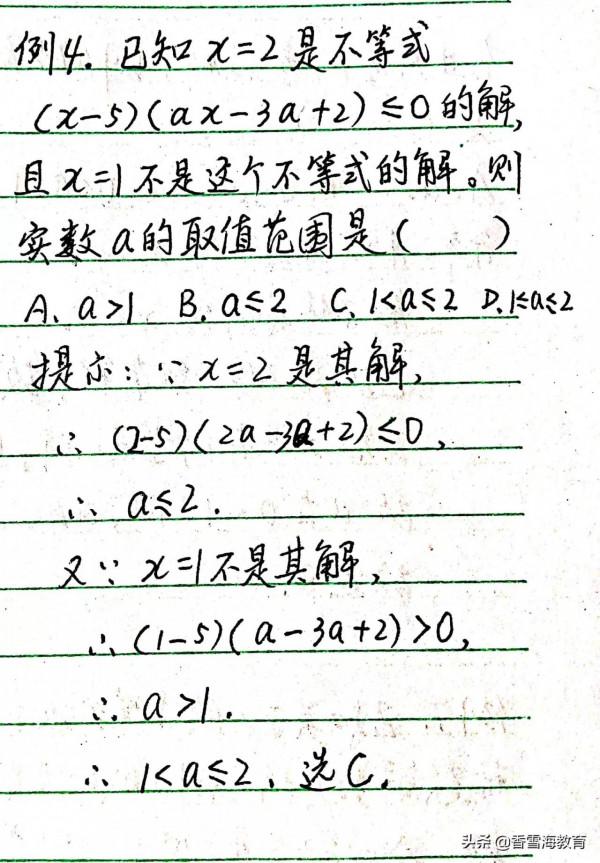 例4. 已知 x=2 是不等式
(x-5)(ax-3a+2)≤0 的解,
且 x=1 不是这个不等式的解。则
实数 a 的取值范围是 (    )
A、a>1  B. a≤2  C. 1<a≤2  D. 1≤a≤2
提示: ∵ x=2 是其解,
∴ (2-5)(2a-3a+2)≤0,
∴ a≤2.
又∵ x=1 不是其解,
∴ (1-5)(a-3a+2)>0,
∴ a>1.
∴ 1<a≤2, 选C.
头条 @香雪海教育